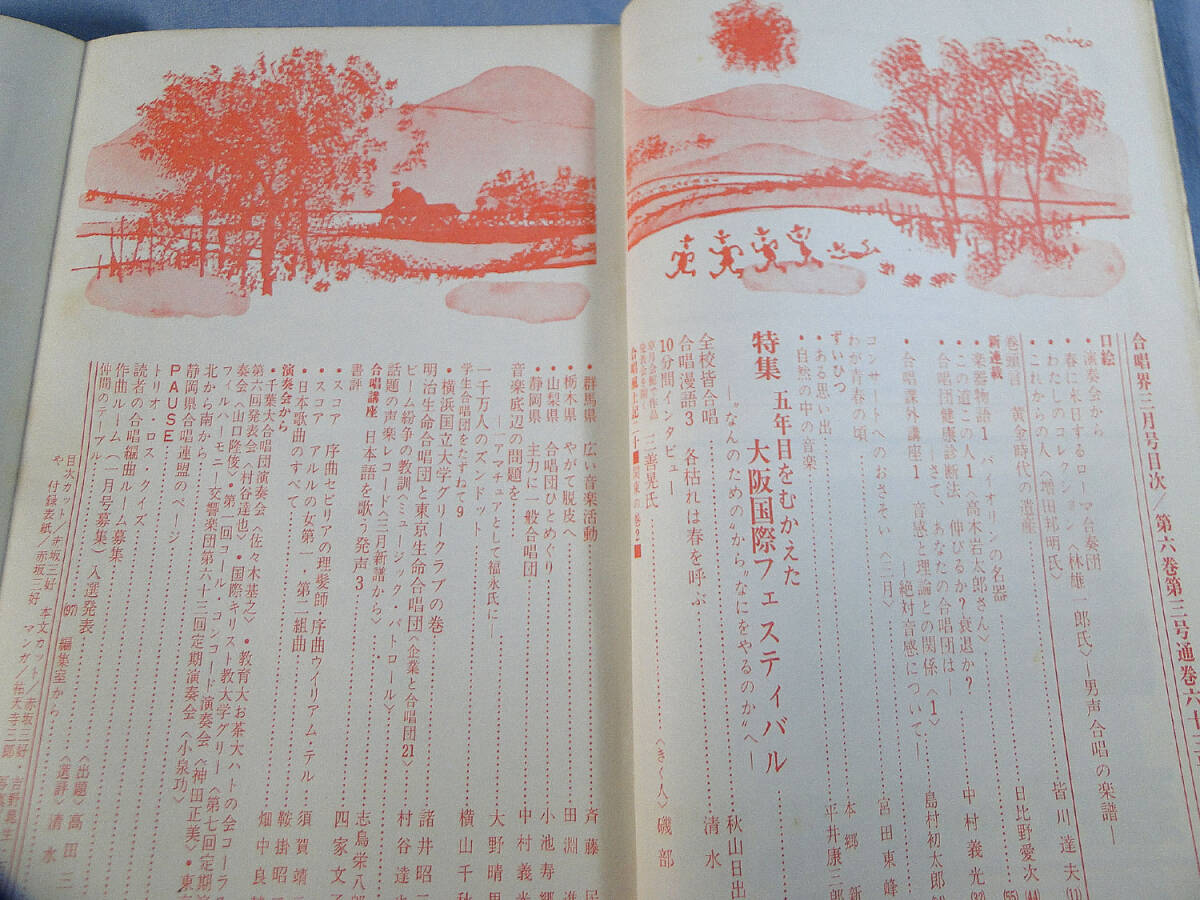 miro
合唱界三月号目次/第六巻第三号通巻六十三
口絵
・演奏会から ローマ合奏団
・春に来日するローマ合奏団
・わたしのコレクション〈林雄一郎氏〉―男声合唱の楽譜― 皆川達夫(11)
・これからの人〈増田邦明氏〉
巻頭言 黄金時代の遺産 日比野愛次(44)
新連載 (55)
・楽器物語1 バイオリンの名器
・この道この人1〈高木岩太郎さん〉 中村義光(32)
・合唱団健康診断法 伸びるか?衰退か?
―さて、あなたの合唱団は―
・合唱課外講座1 音感と理論との関係〈1〉 島村初太郎
―絶対音感について―
コンサートへのおさそい〈二月〉 宮田東峰
わが青春の頃 本郷新
ずいひつ
・ある思い出 平井康三郎
・自然の中の音楽
特集 五年目をむかえた
大阪国際フェスティバル
―“なんのための”から“なにをやるのか”へ― 秋山日出
全校皆合唱 清水
合唱漫語3 各枯れは春を呼ぶ
10分間インタビュー 〈きく人〉磯部
三善晃氏
・群馬県 広い音楽活動 斉藤民
・栃木県 やがて脱皮へ 田淵進
・山梨県 合唱団ひとめぐり 小池寿郷
・静岡県 主力に一般合唱団 中村義光
音楽底辺の問題を 大野晴男
―アマチュアとして福永氏に―
一千万人のズンドット 横山千秋
学生合唱団をたずねて9
・横浜国立大学グリークラブの巻
明治生命合唱団と東京生命合唱団〈企業と合唱団21〉 諸井昭二
ビーム紛争の教訓〈ミュージック・パトロール〉 村谷達也
話題の声楽レコード〈三月新譜から〉 志鳥栄八郎
合唱講座 日本語を歌う発声3 四家文子
書評
・スコア 序曲セビリアの理髪師・序曲ウイリアム・テル 須賀靖
・スコア アルルの女第一・第二組曲 鞍掛昭二
・日本歌曲のすべて 畑中良
演奏会から
・千葉大合唱団演奏会〈佐々木基之〉・教育大お茶大ハトの会コーラ
第六回発表会〈村谷達也〉・国際キリスト教大学グリー〈第七回定期演
奏会〈山口隆俊〉・第一回コール・コンコード演奏会〈神田正美〉・東
フィルハーモニー交響楽団第六十三回定期演奏会〈小泉功〉
北から南から
静岡県合唱連盟のページ
PAUSE
トリオ・ロス・クイズ 〈出題〉高田三
読者の合唱編曲ルーム募集 〈選評〉清水
作曲ルーム(一月号募集)入選発表
仲間のテーブル (97) 編集室から
目次カット/赤坂三好 本文カット/赤坂三好・吉野晃生
や 付録表紙/赤坂三好 マンガ/祐天寺三郎